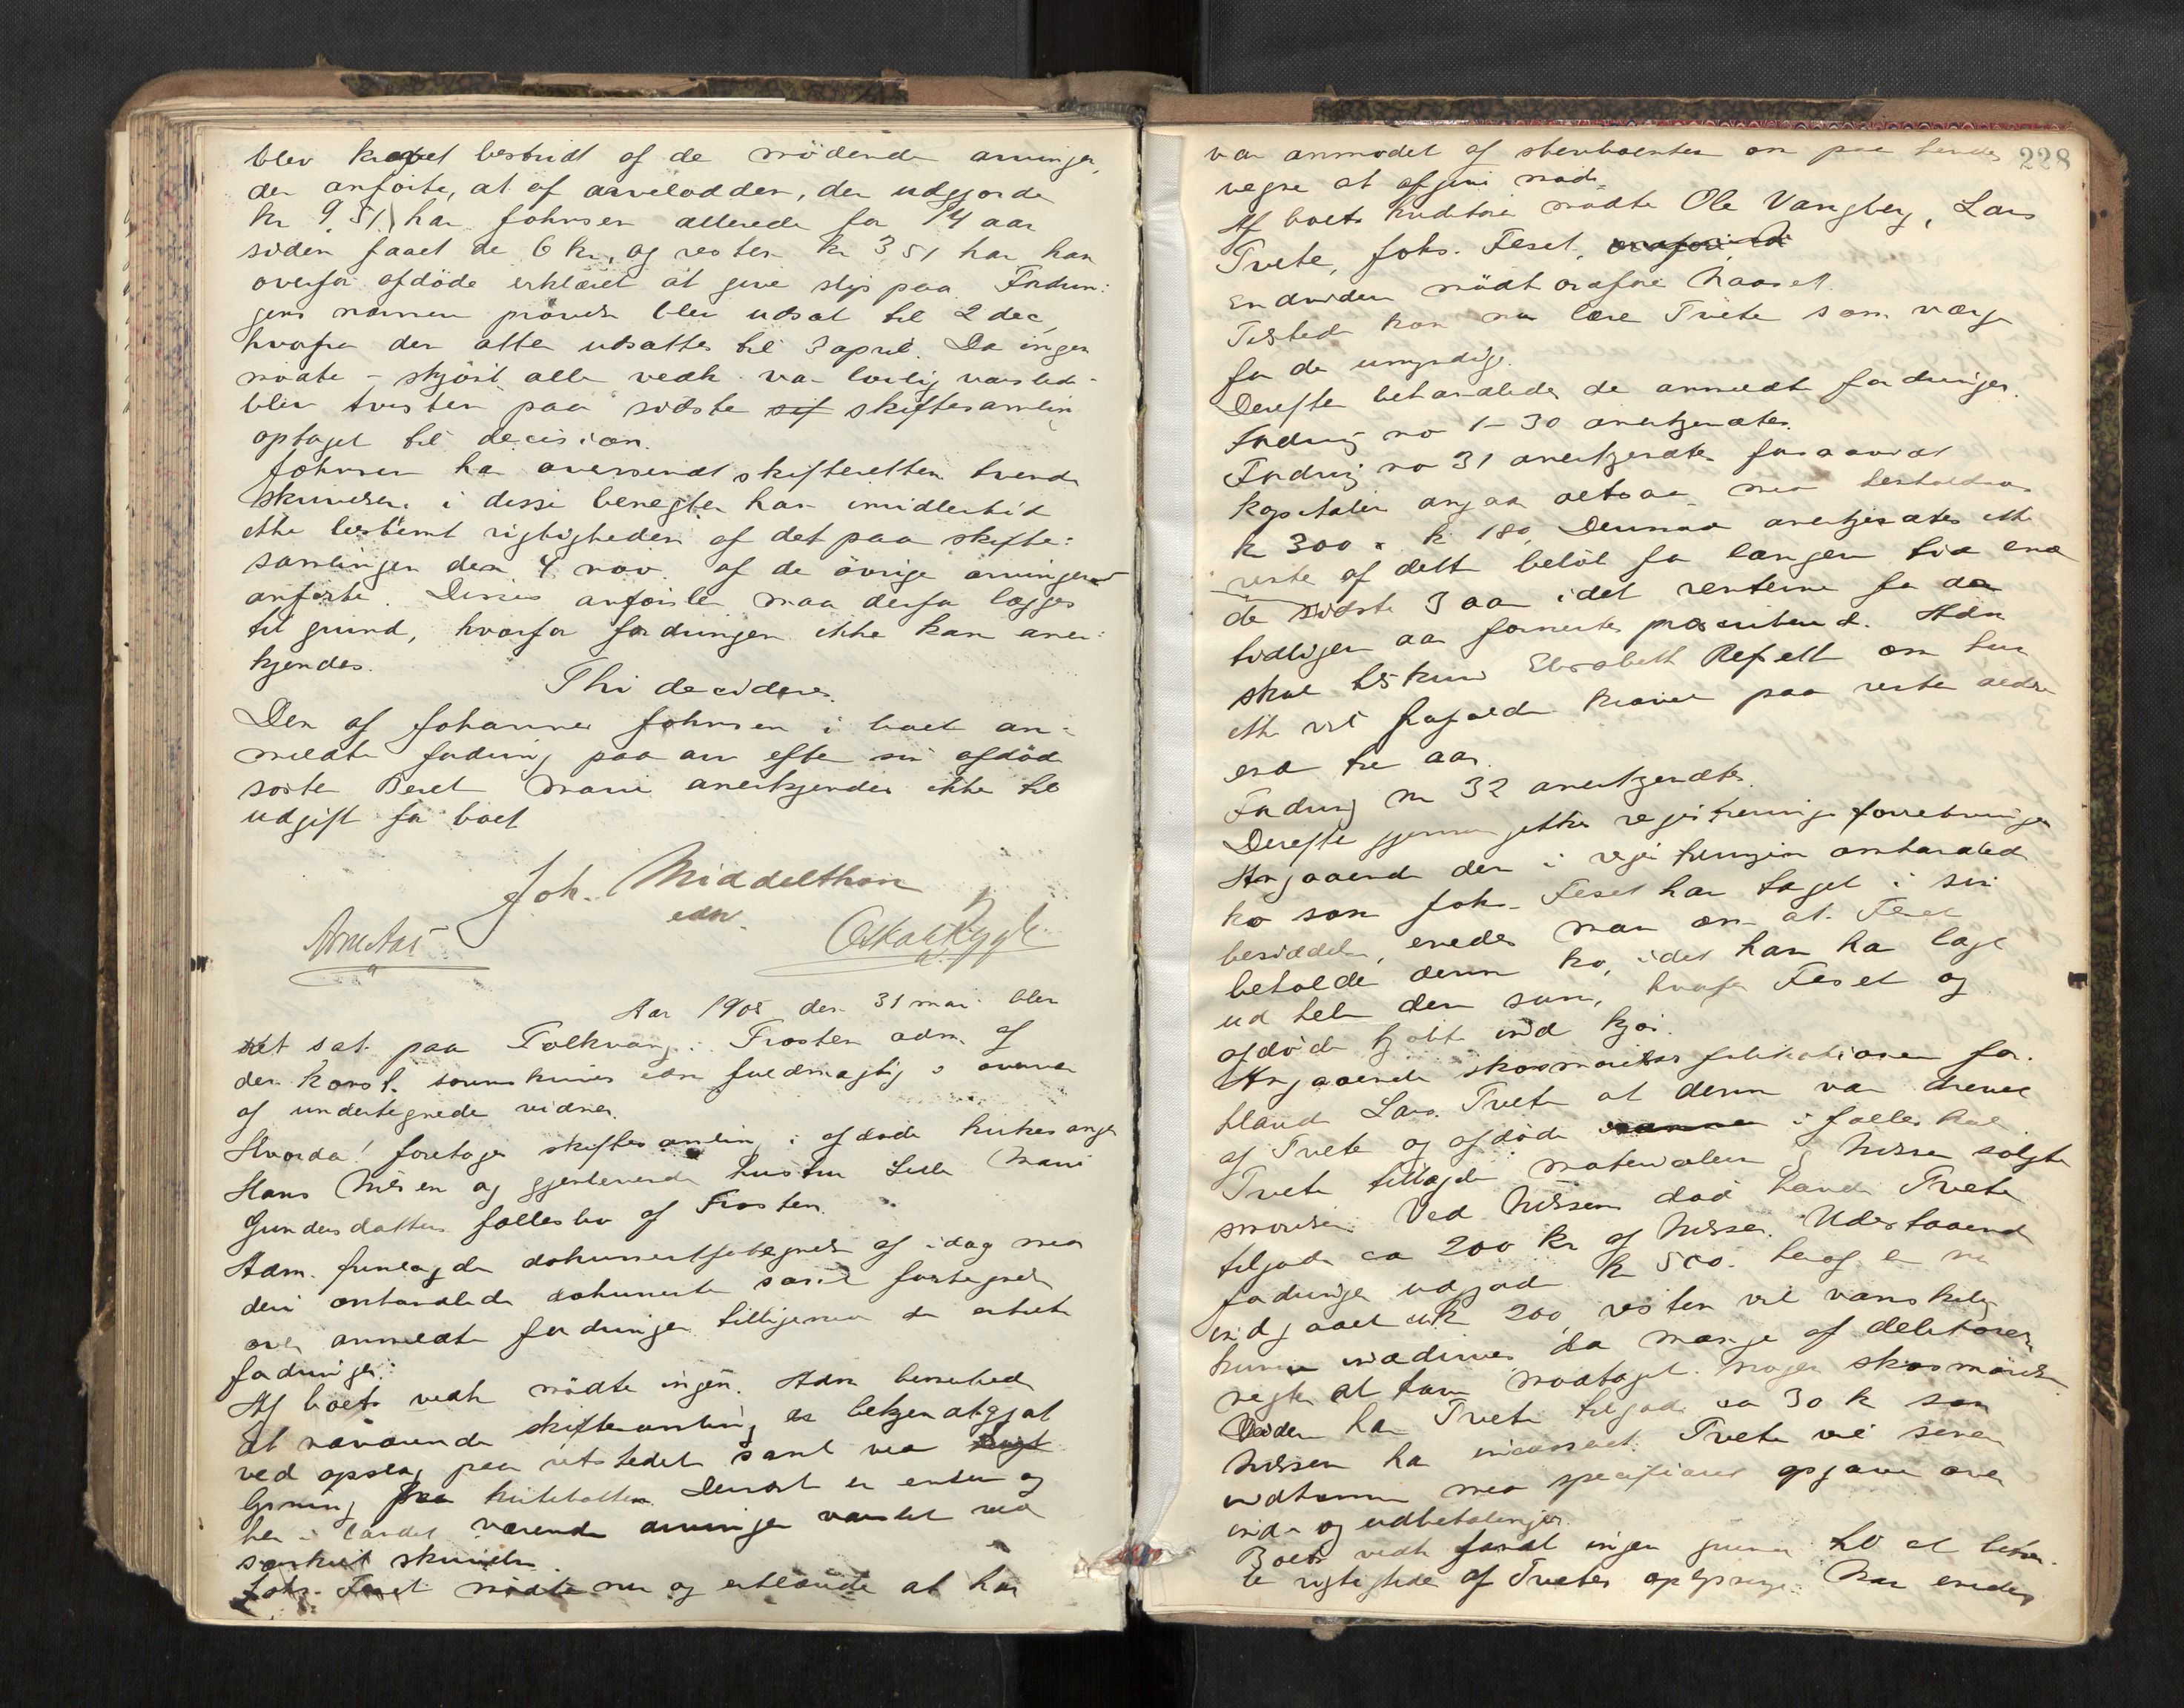 blev kravet bestridt af de mødende arvinger,
der anførte, at af arvelodden, der udgjorde
kr 9.51 har Johnsen allerede for 14 aar
siden faaet de 6 kr, og resten kr 3 51 har han
overfor afdøde erklæret at give slip paa. Fordrin:
gens nærmere prøvelse blev udsat til 2 dec,
hvorfra den atter udsattes til 3 april. Da ingen
mødte - skjønt alle vedk. var lovlig varslede -
blev tvisten paa sidste sif skiftesamling
optaget til decision.
Johnsen har oversendt skifteretten tvende
skrivelser, i disse benegter han imidlertid
ikke bestemt rigtigheden af det paa skifte:
samlingen den 4 nov. af de øvrige arvinger
anførte. Disses anførsler maa derfor lægges
til grund, hvorfor fordringen ikke kan aner:
kjendes.
Thi decideres
Den af Johannes Johnsen i boet an-
meldte fordring paa arv efter sin afdøde
søster Beret Marie anerkjendes ikke til
udgift for boet
Joh. Middelthon
edsv.
Arne Aas Oskar Rygh
Aar 1905 den 31 mai blev
ret sat paa Folkvang i Frosten adm. af
den konst. sorenskrivers edsv fuldmægtig i overvær
af undertegnede vidner.
Hvorda! foretages skiftesamling i afdøde kirkesanger
Hans Nilsen og gjenlevende hustru Marie
Gundersdatters fællesbo af Frosten.
Adm. fremlagde dokumentfortegnelse af idag med
deri omhandlede dokumenter samt fortegnelse
over anmeldte fordringer tilligemed de enkelte
fordringer.
Af boets vedk mødte ingen. Adm bemerkede
at nærværende skiftesamling er bekjendtgjort
ved opslag paa retstedet samt ved
lysning fra kirkebakken. Dernæst er enken og
her i landet værende arvinger varslet ved
særskilt skrivelse.
Johs. Feset mødte nu og erklærede at han
228
var anmodet af sterboenken om paa hendes
vegne at afgive møde.
Af boets kreditorer mødte Ole Vangberg, Lars
Tvete, Johs. Feset,
Endvidere mødte ordfører Naavel.
Tilstede kom nu Lars Tvete som værge
for de umyndige.
Derefter behandledes de anmeldte fordringer.
Fordring no 1-30 anerkjendtes.
Fordring no 31 anerkjendtes forsaavidt
kapitalen angaar altsaa med henholdsvis
kr 300 & kr 180. Derimod anerkjendtes ikke
rente af dette beløb for længere tid end
de sidste 3 aar idet renterne for de
tidligere aar formentes præscriberet. Adm
skal tilskrive Elisabeth Refseth om hun
ikke vil frafalde kravet paa rente ældre
end tre aar.
Fordring no 32 anerkjendtes.
Derefter gjennemgikkes registreringsforretningen
Angaaende den i registreringen omhandlede
ko som Johs. Feset har taget i sin
besiddelse, enedes man om at Feset
beholder denne ko, idet han har lagt
ud hele den sum, hvorfor Feset og
afdøde kjøbte ind kjør.
Angaaende skosmørelsesfabrikationen for-
klarede Lars Tvete at denne var drevet
af Tvete og afdøde i fællesskab
Tvete tillagde materialier & Nilsen solgte
smørelsen. Ved Nilsens død havde Tvete
tilgode ca 200 kr af Nilsen. Udestaaende
fordringer udgjorde kr 500. heraf er nu
indgaaet ca kr 200, resten vil vanskelig
kunne inddrives da mange af debitorerne
negter at have modtaget nogen skosmørelse.
Videre har Tvete tilgode ca 30 kr som
Nilsen har incasseret. Tvete vil senere
indkomme med specificeret opgave over
ind- og udbetalinger.
Boets vedk fandt ingen grund til at betvi-
le rigtigheden af Tvetes oplysninger. Man enedes